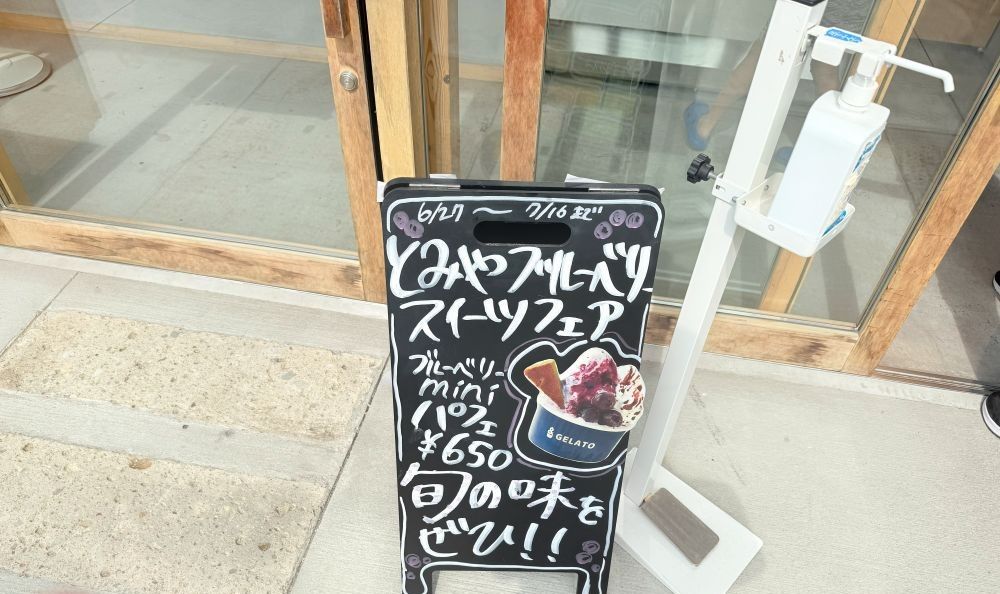 6/27 〜 7/16まで
とみやブルーベリー
スイーツフェア
ブルーベリー
mini
パフェ
¥650
GELATO
旬の味を
ぜひ!!